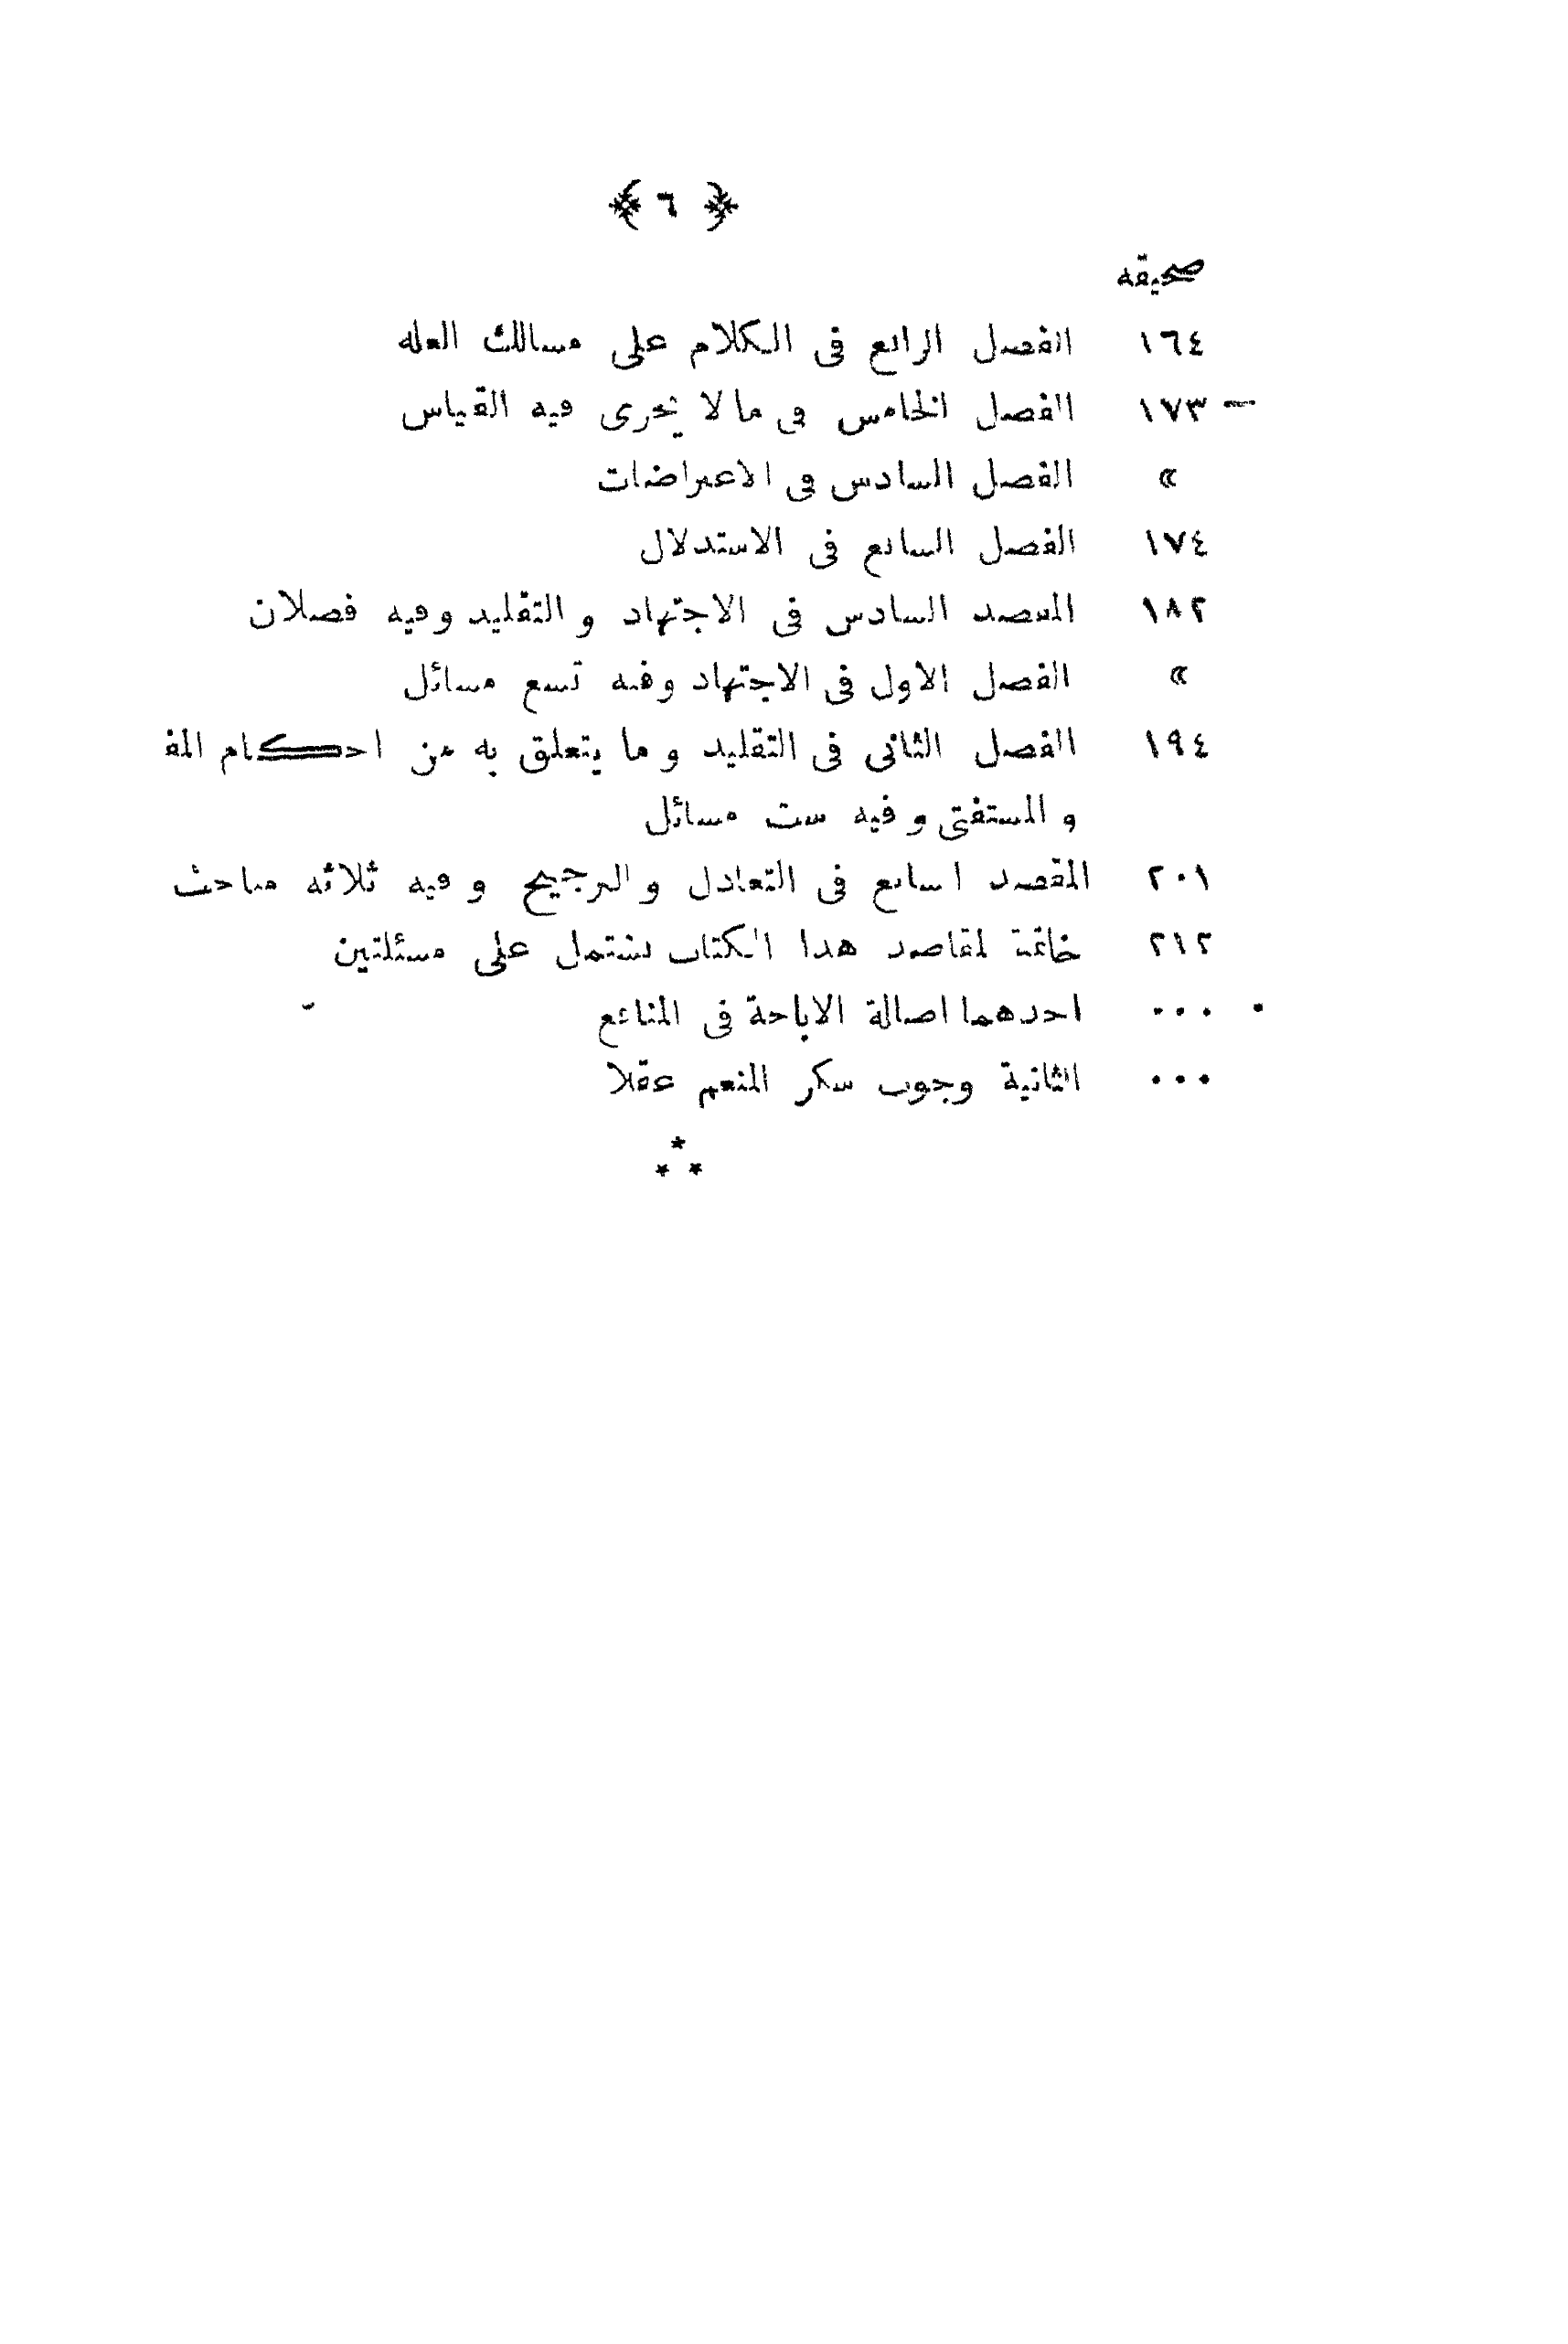 ﴿ ٦ ﴾
صحيفه
١٦٤ الفصل الرابع فى الكلام على مسالك العله
١٧٣ الفصل الخامس فى ما لا يجرى فيه القياس
» الفصل السادس فى الاعتراضات
١٧٤ الفصل السابع فى الاستدلال
١٨٢ المقصد السادس فى الاجتهاد و التقليد وفيه فصلان
» الفصل الاول فى الاجتهاد وفيه تسع مسائل
١٩٤ الفصل الثانى فى التقليد و ما يتعلق به من احكام المف
و المستفتى و فيه ست مسائل
٢٠١ المقصد السابع فى التعادل و الترجيح و فيه ثلاثه مباحث
٢١٢ خاتمة لمقاصد هذا الكتاب يشتمل على مسئلتين
٠٠٠ احدهما اصالة الاباحة فى المنافع
٠٠٠ الثانية وجوب شكر المنعم عقلا